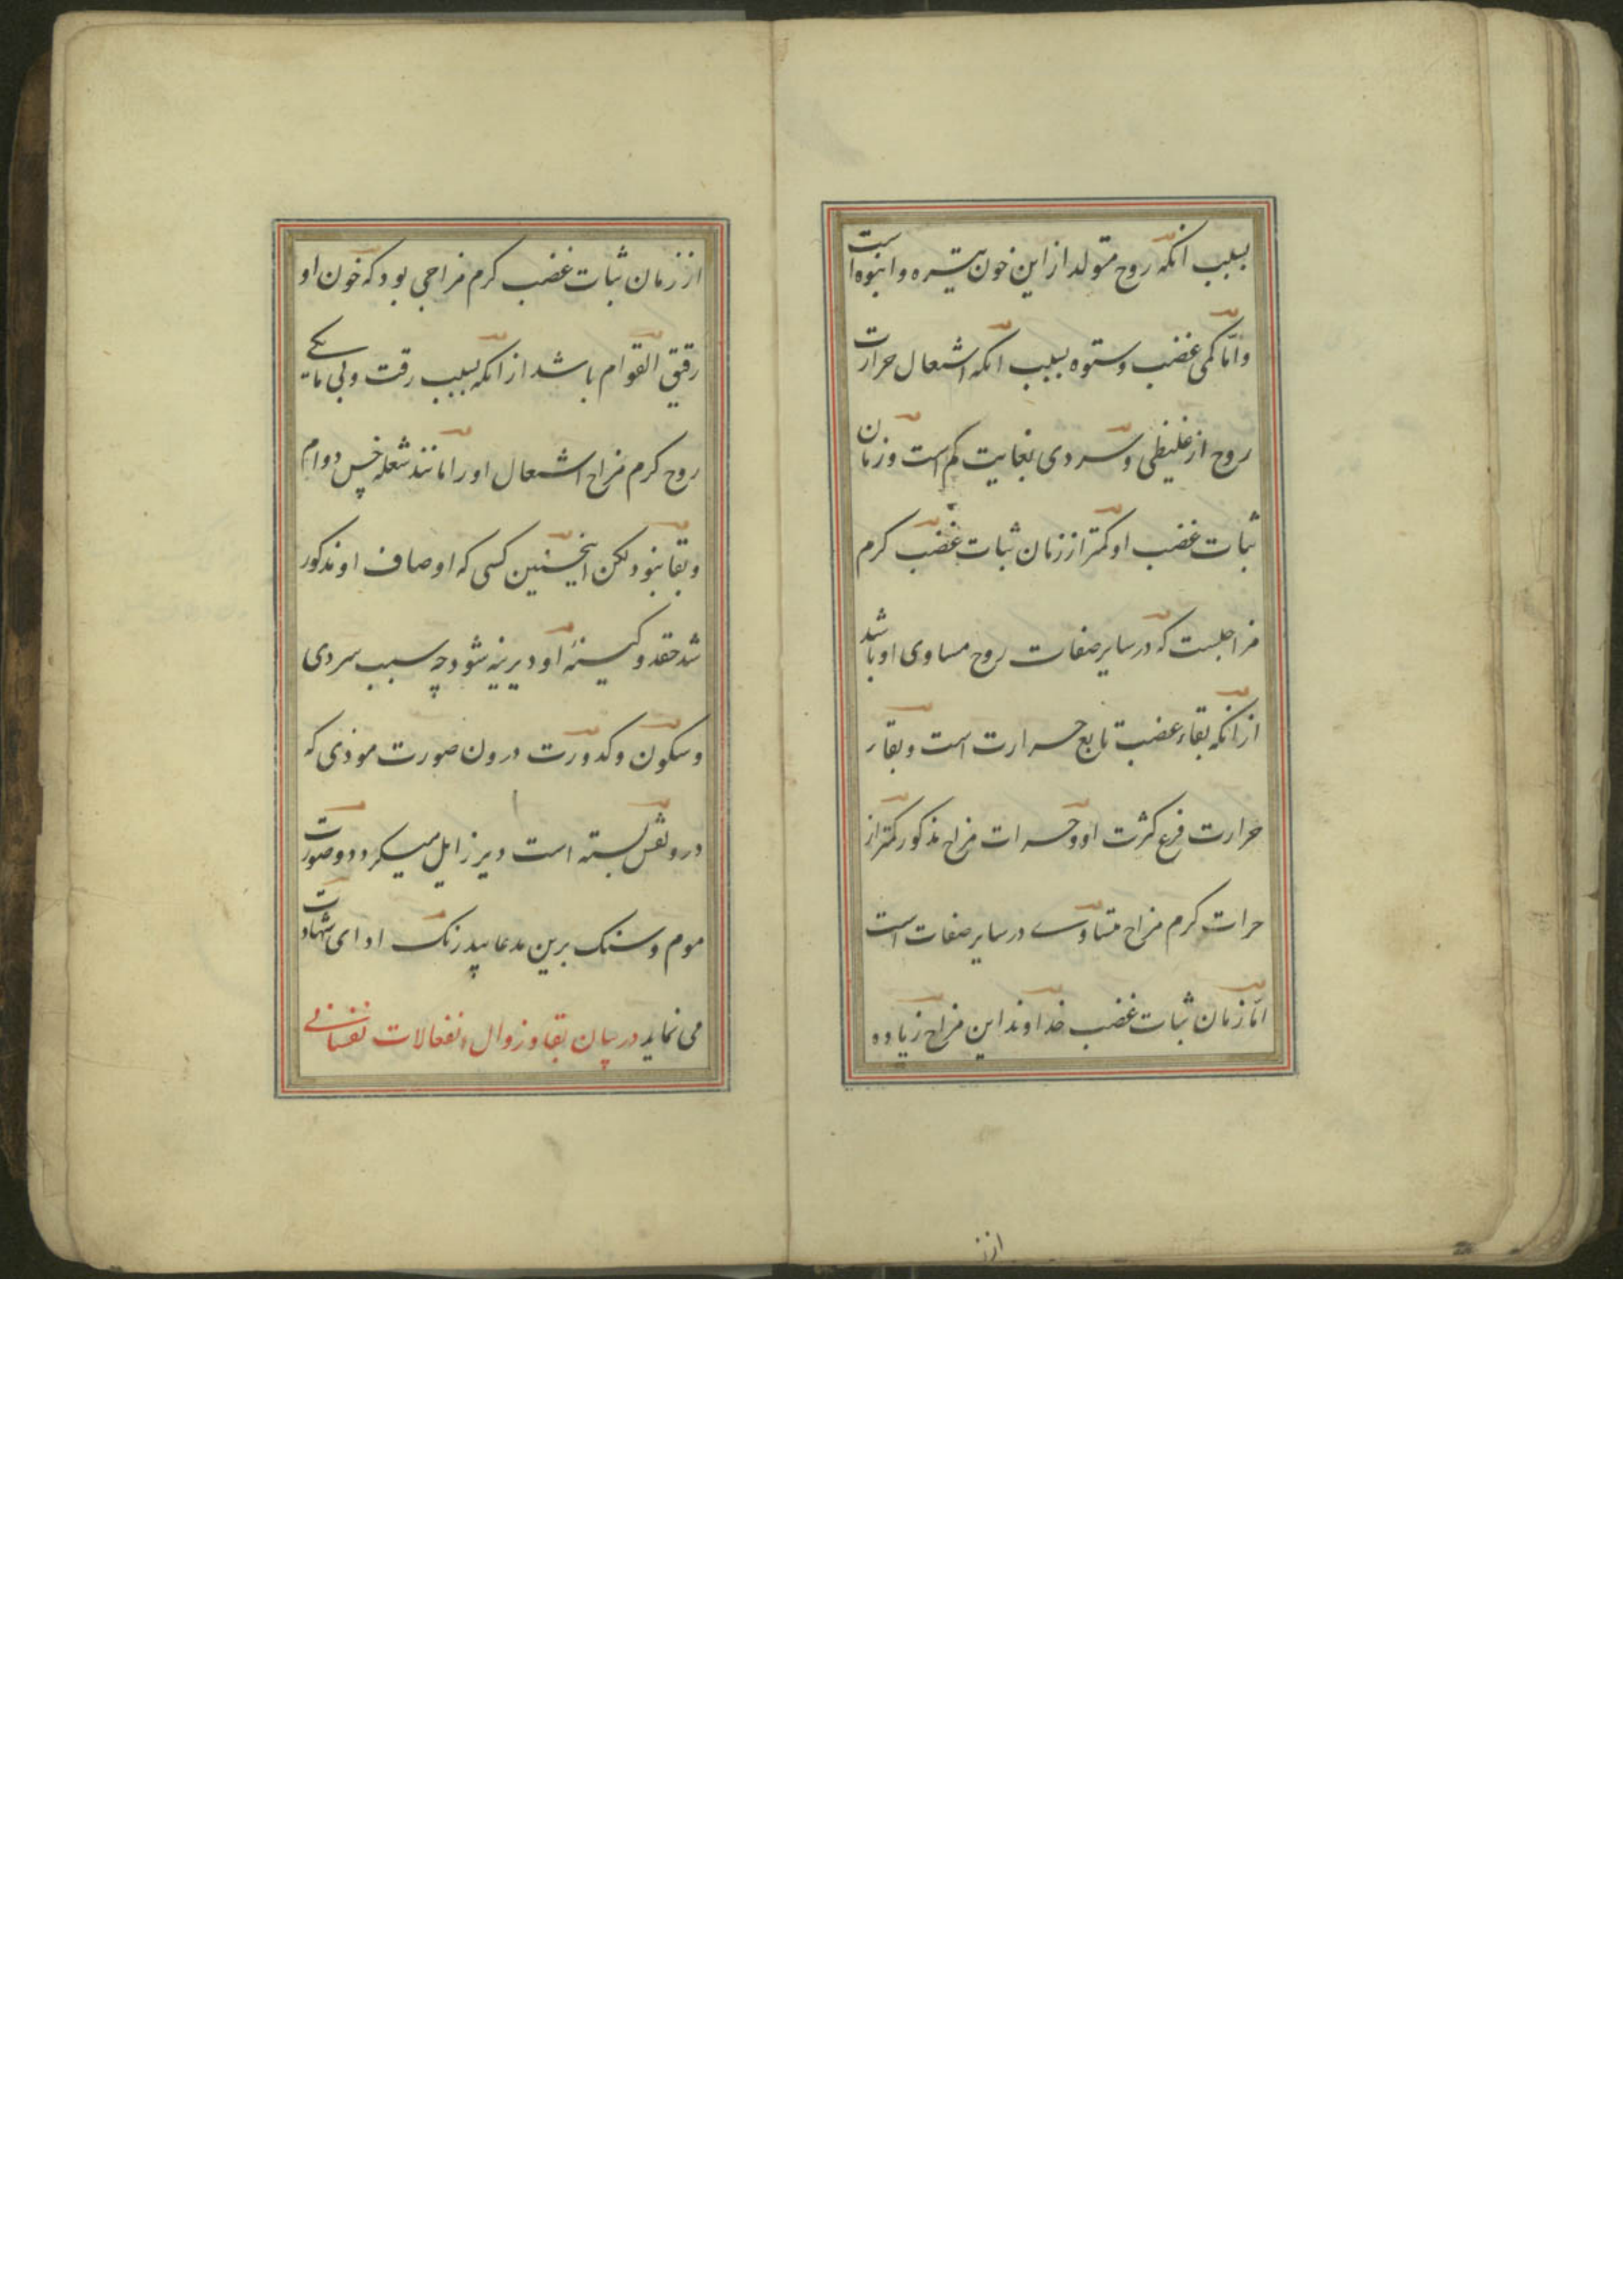 بسبب آنکه روح متولد از این خون تیره و انبوه است
و اما کمی غضب وستوه بسبب آنکه اشتعال حرارت
روح از غلیظی و سردی بغایت کم است و زمان
ثبات غضب او کمتر از زمان ثبات غضب کرم
مزاجیست که در سایر صفات روح مساوی او باشد
از آنکه بقاء غضب تابع حرارت است و بقاء
حرارت فرع کثرت او و حرات مزاج مذکور کمتر از
حرات کرم مزاج متساوی در سایر صفات است
اما زمان ثبات غضب خداوند این مزاج زیاده
از ز
از زمان ثبات غضب کرم مزاجی بود که خون او
رقیق القوام باشد از آنکه بسبب رقت و بی مایکی
روح کرم مزاج اشتعال او را مانند شعله خس دوام
و بقا نبود لکن اینچنین کسی که اوصاف او مذکور
شد حقد و کینه او دیرینه شود چه سبب سردی
و سکون و کدورت درون صورت موذی که
در و نقش بسته است دیر زایل میکردد و صورت
موم و سنک برین مدعا بیدرنک ادای شهادت
می نماید در بیان بقا و زوال انفعالات نفسانی